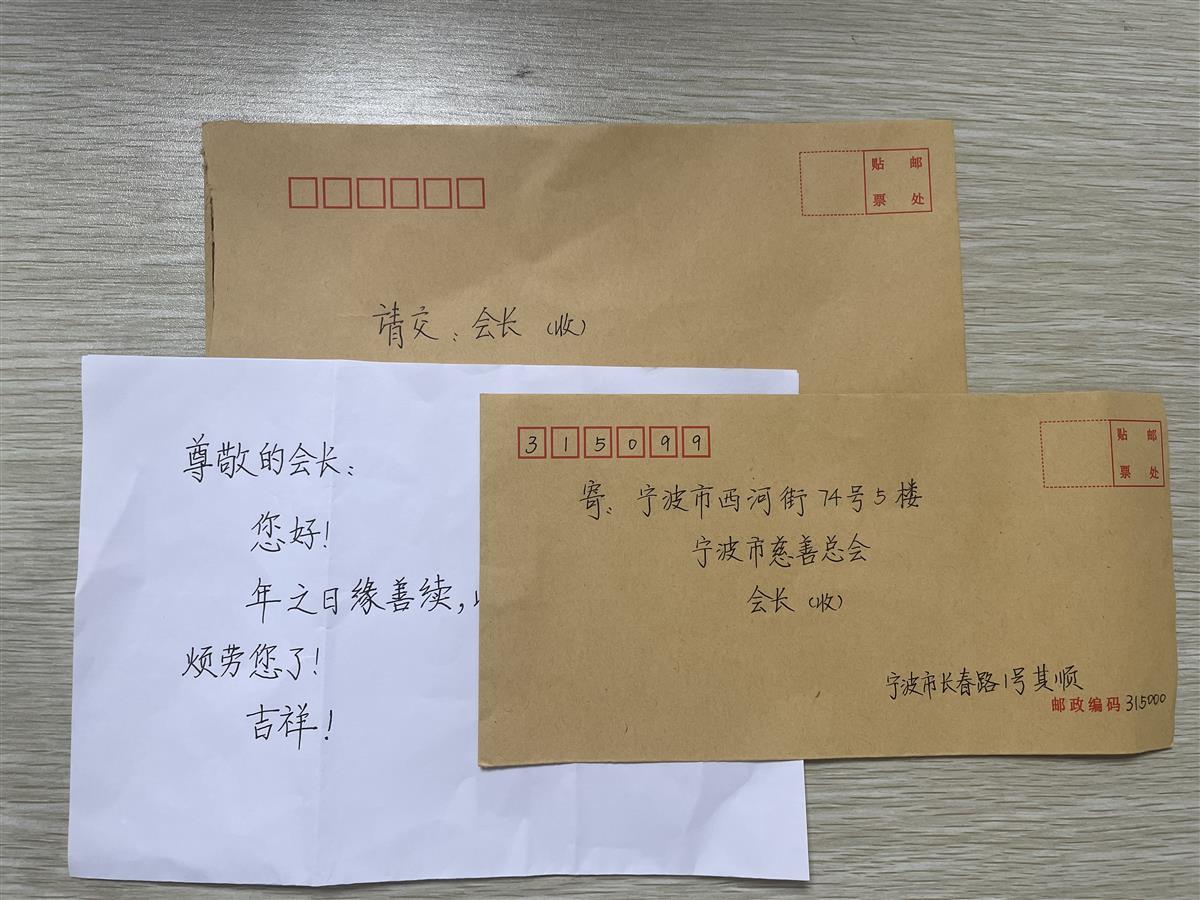 贴 邮
票 处
请交：会长（收）
尊敬的会长：
您好！
年之日缘善续，
烦劳您了！
吉祥！
315099
贴 邮
票 处
寄：宁波市西河街74号5楼
宁波市慈善总会
会长（收）
宁波市长春路1号其顺
邮政编码 315000